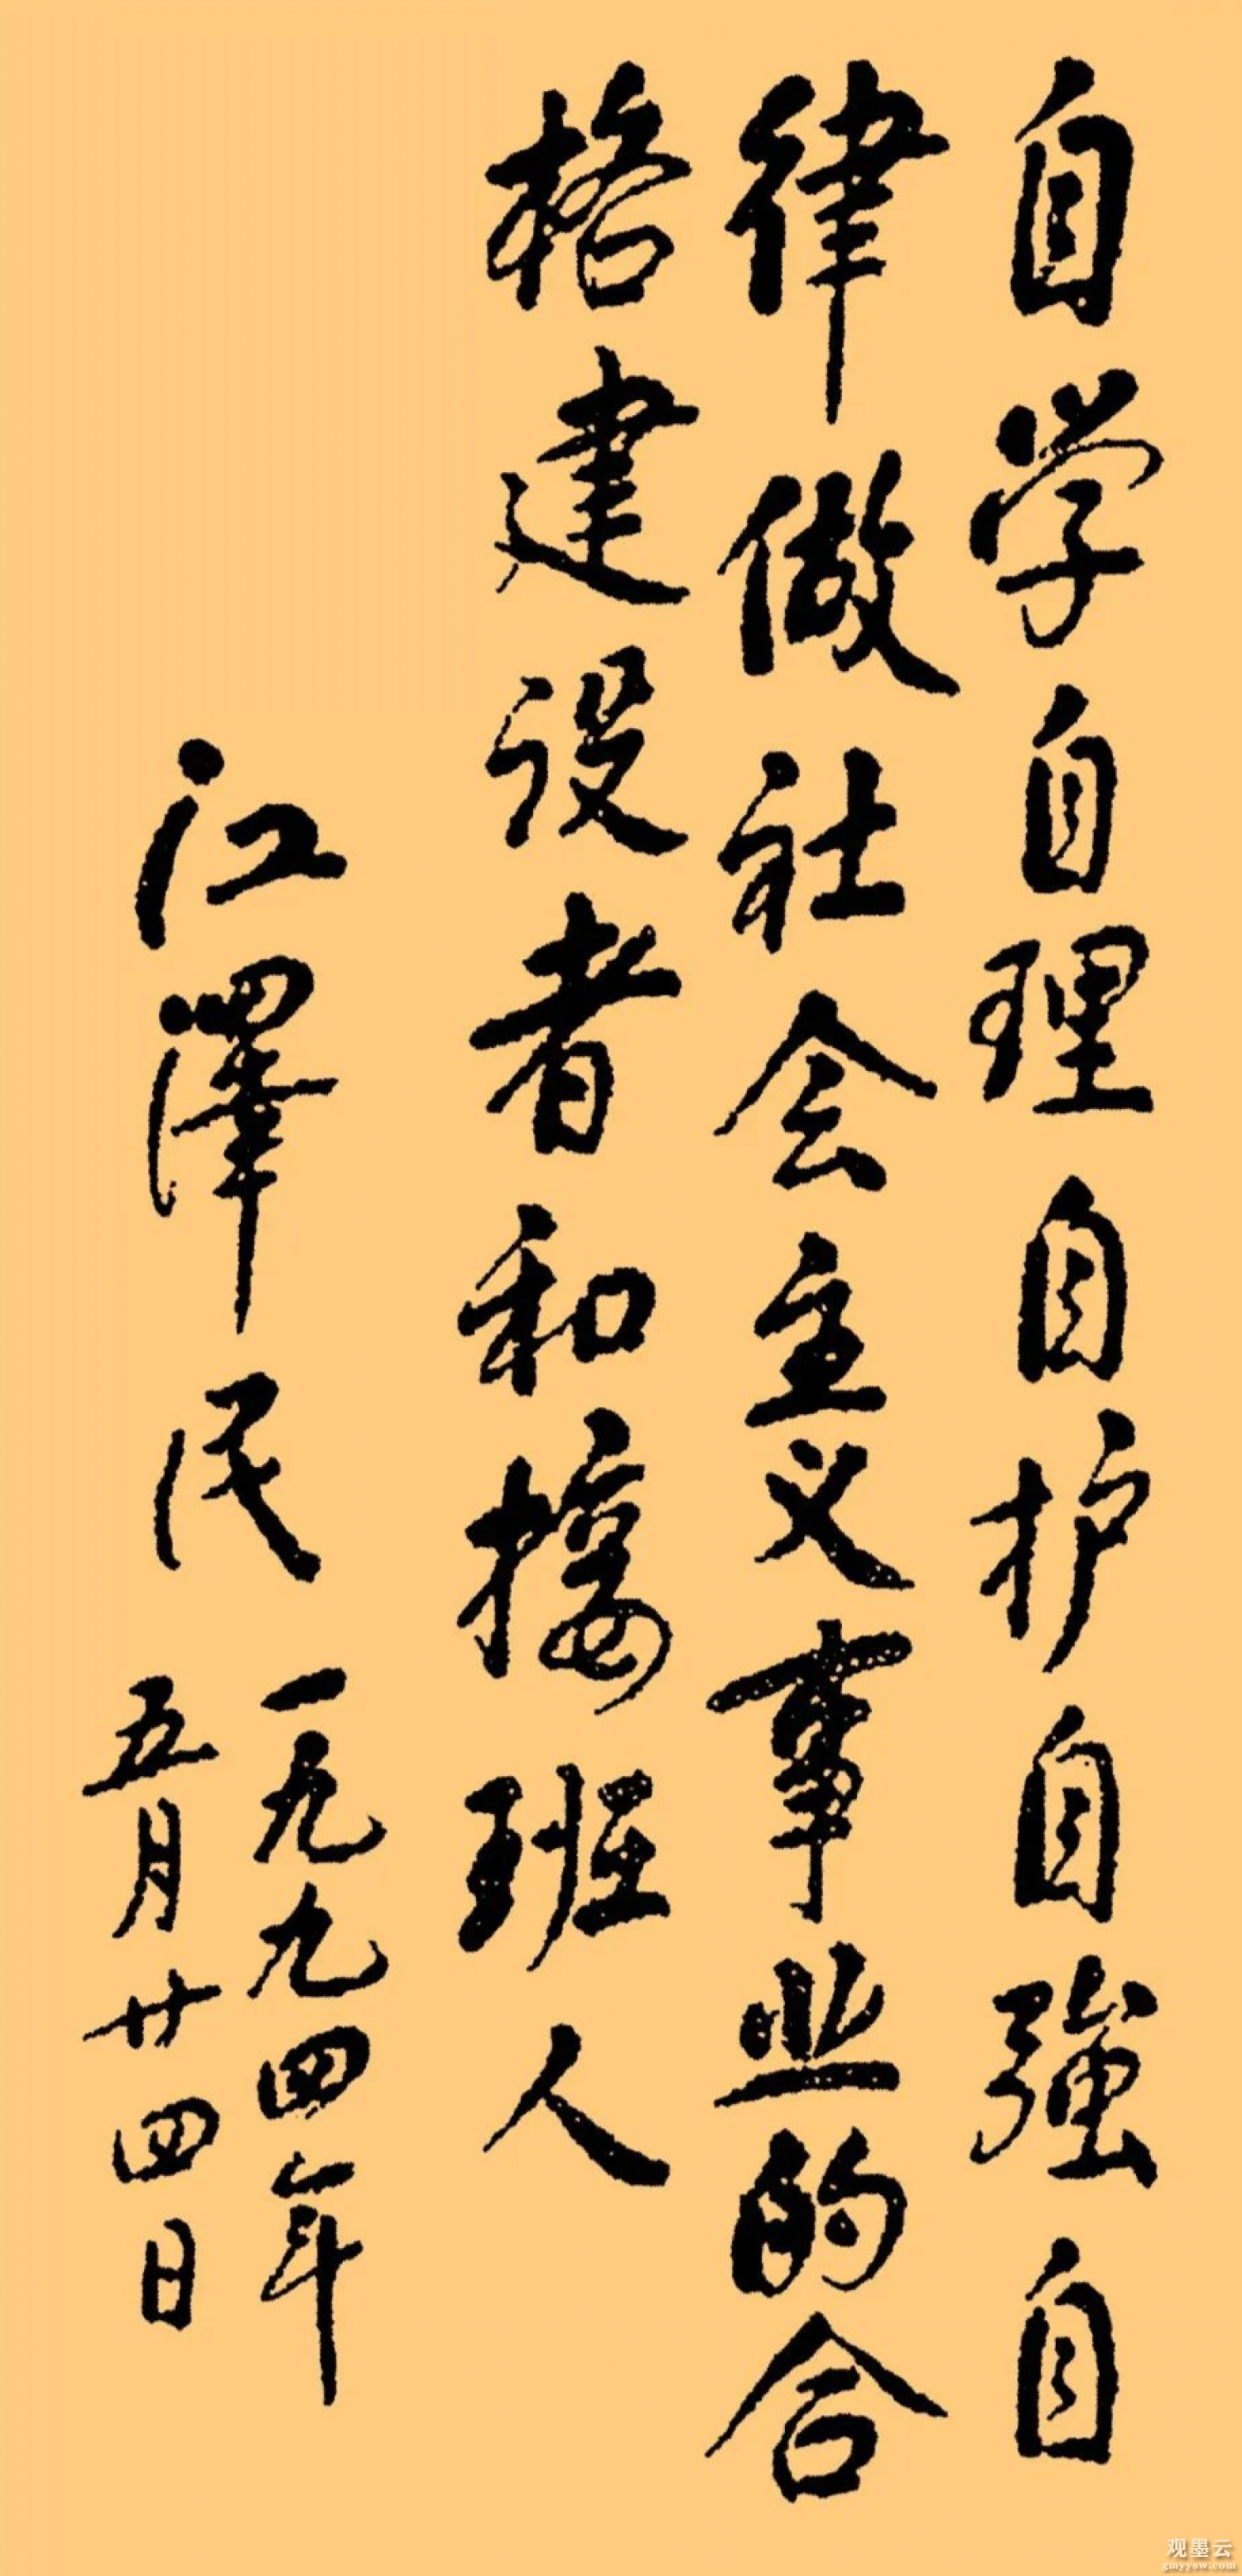 自学自理自护自强自
律做社会主义事业的合
格建设者和接班人
江澤民
一九九四年
五月廿四日
观墨云
gmyysw.com